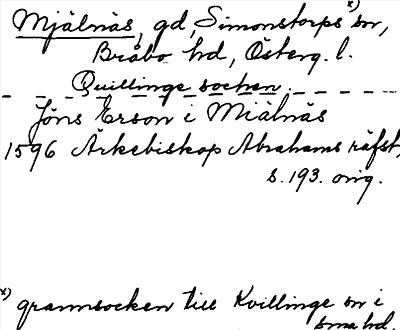 Mjälnäs, gd, Simonstorps x) sn,
Bråbo hd, Österg. l.
Quillinge sochen.
Jöns Erson i Miälnäs
1596 Ärkebiskop Abrahams räfst,
s. 193. orig.
x) grannsocken till Kvillinge sn i
smma hd.